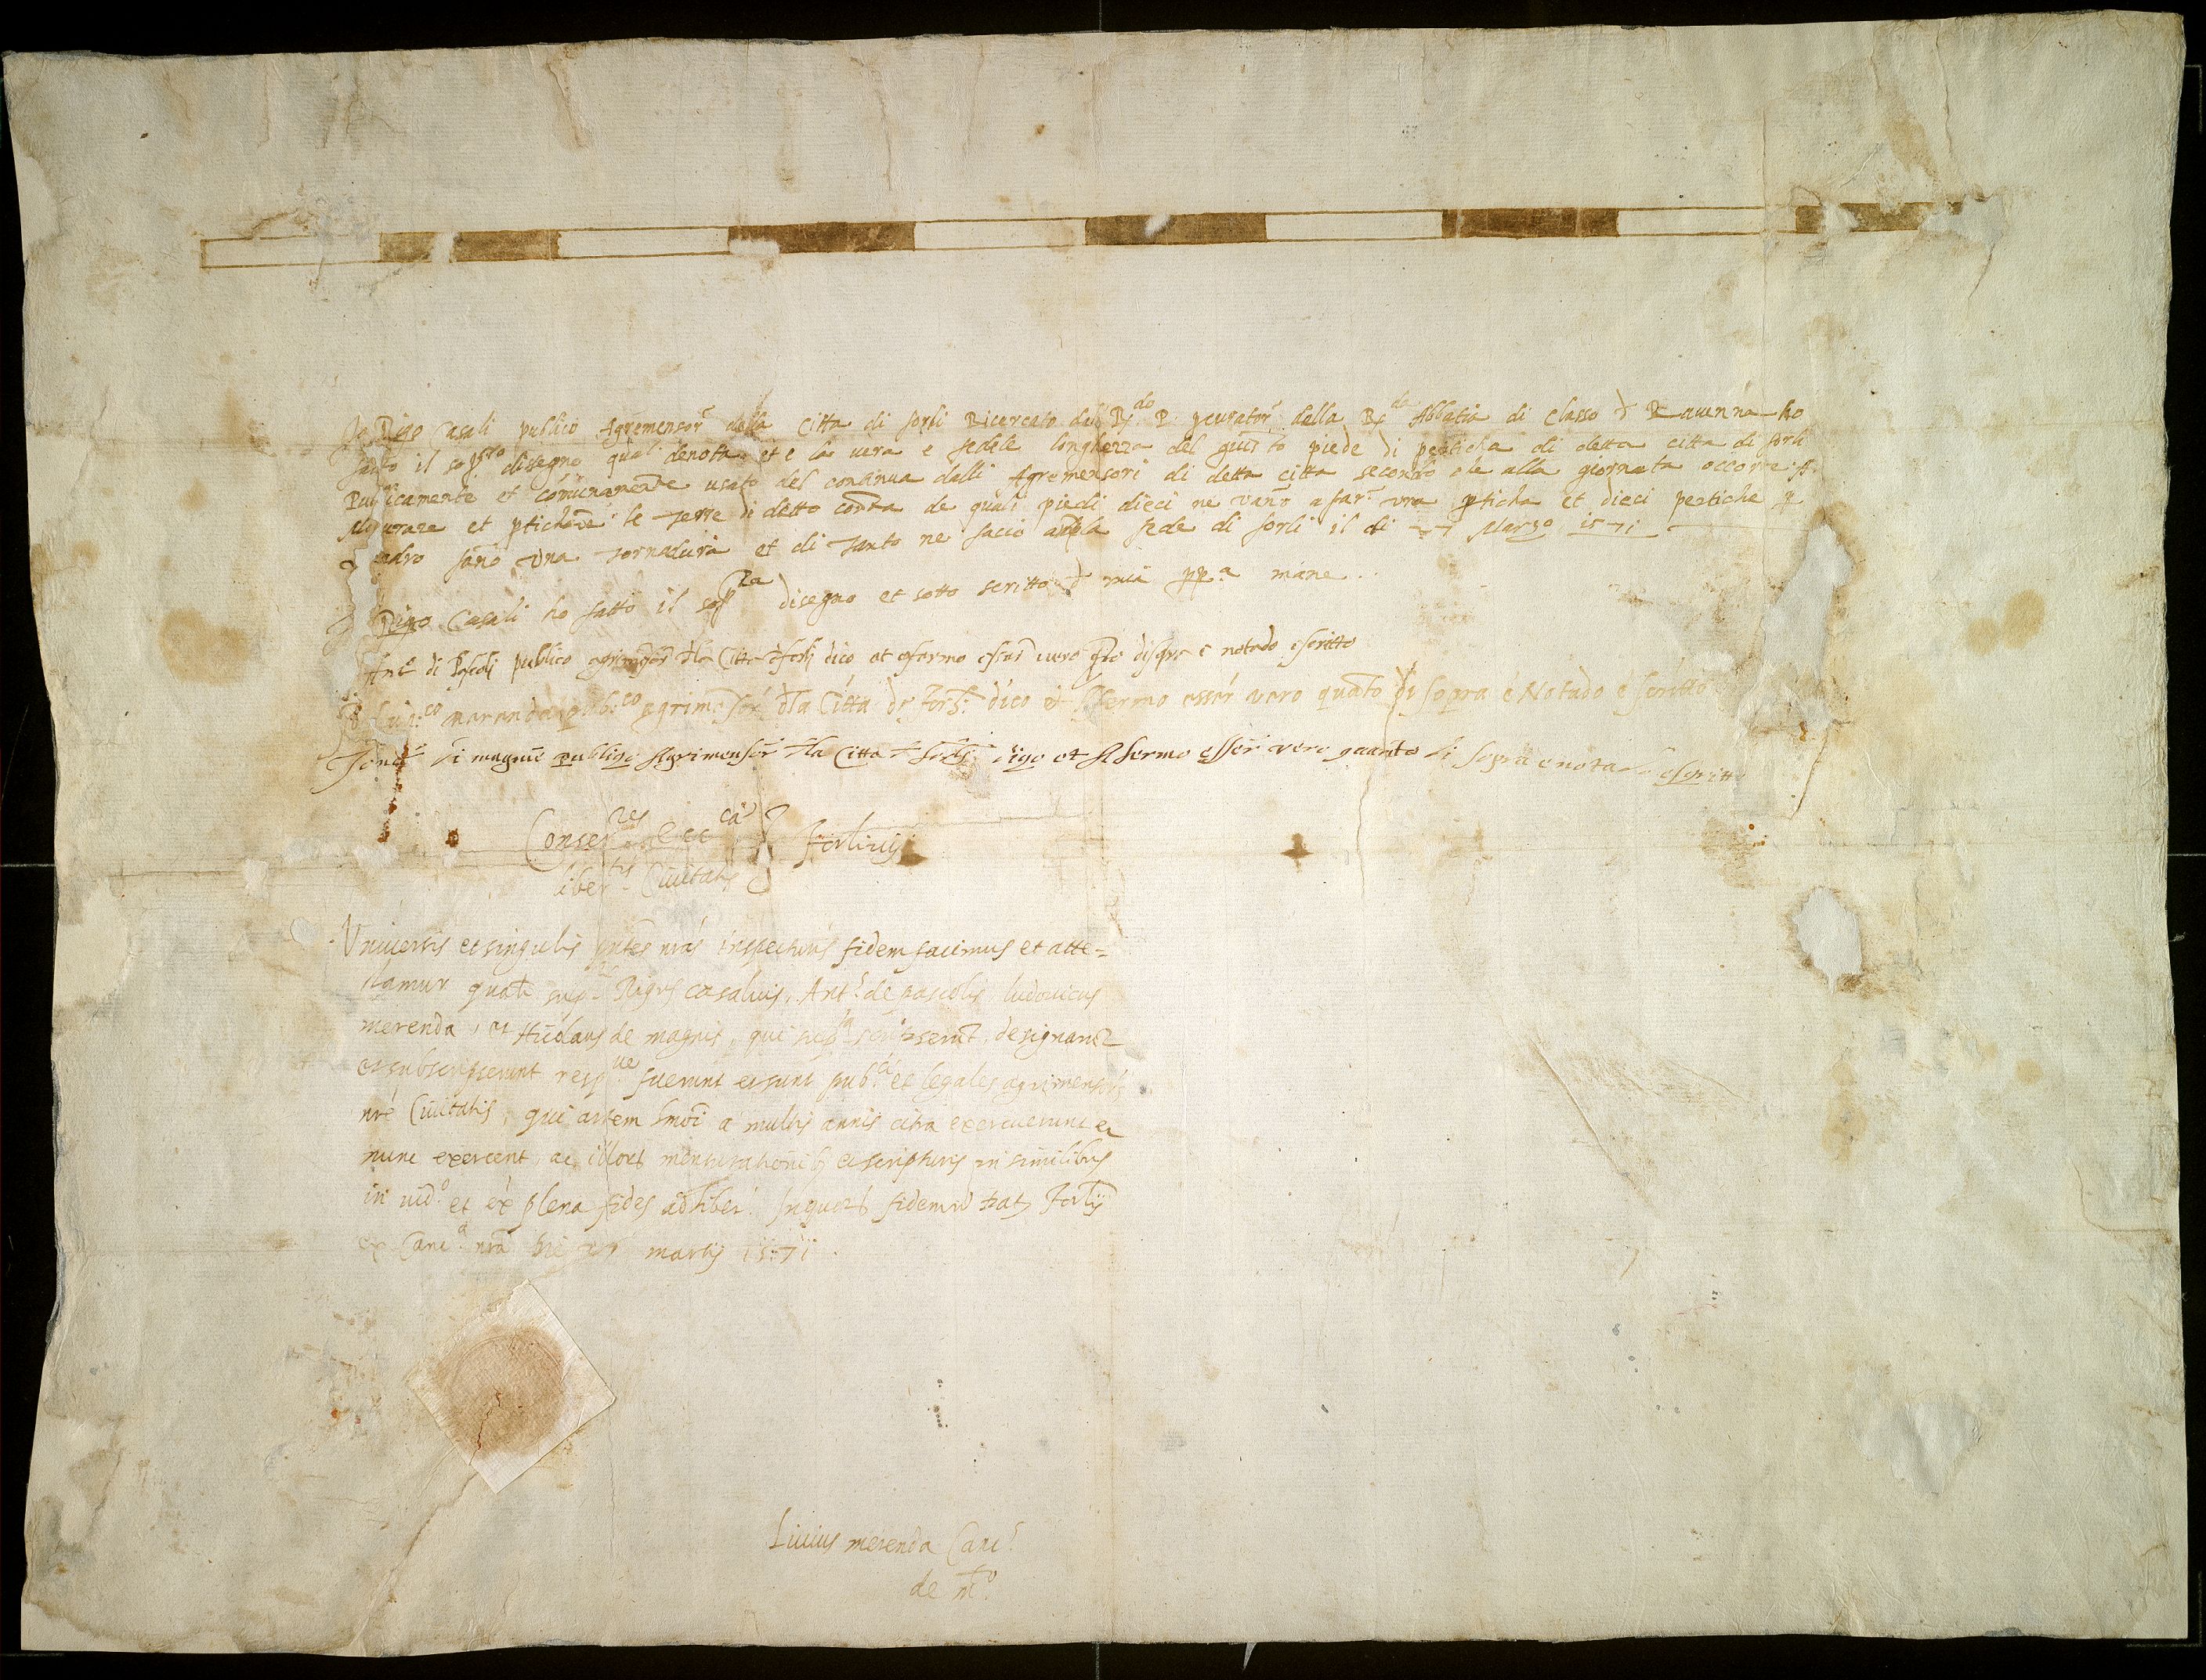 Io Rigo Casali publico Agremensor della Citta di forli Ricercato dal R.do P. pcurator della R.da Abbatia di Classo d Ravenna ho
fatto il sop.to dissegno qual denotta et e la vera e fedele longhezza del giusto piede di perticha di detta citta di forli
Publicamente et comunamente usato del continua dalli Agremensori di detta citta secondo che alla giornata occorre A
Misurare et pticare le terre di detto conta de quali piedi dieci ne vano a far una pticha et dieci pertiche p
quadro fano una tornadura et di tanto ne facio ampla fede di forli il di 27 Marzo 1571
Io Rigo Casali ho fatto il sop.ra disegno et sotto scritto d mia pp.a mane
Ant di Pascoli publico agrimensor dla Citta d forli dico et afermo esser vero qto di sopra e notado e scritto
Io Lud.co merenda pub.co agrimesor dla Citta de forli dico et Afermo esser vero quato di sopra e Notado e scritto
di magni publigo Agrimensor dla Citta d forli digo et Afermo esser vero quanto di sopra e notado e scritto
Conser.res ecc.ca
liber.tis Civitatis Forlivij
Universis et singulis pntes nras inspecturis fidem facimus et atte=
stamur qual. sup. Rigus casalius, Ant.s de pascolis, ludovicus
merenda, et Nicolaus de magnis, qui sup.ta scripserunt, designarunt
et subscripserunt resp.ve fuerunt et sunt pub.ci et legales agrimensores
nre Civitatis, qui artem hmoi a multis annis citra exercuerunt et
nunc exercent, ac illor mensurationib. et scripturis in similibus
in iud.o et ex.a plena fides adhiber. In quor fidem Dat. Forlij
ex Canc.a nra Die 27 martij 1571
Livius merenda Canc.s
de m.to